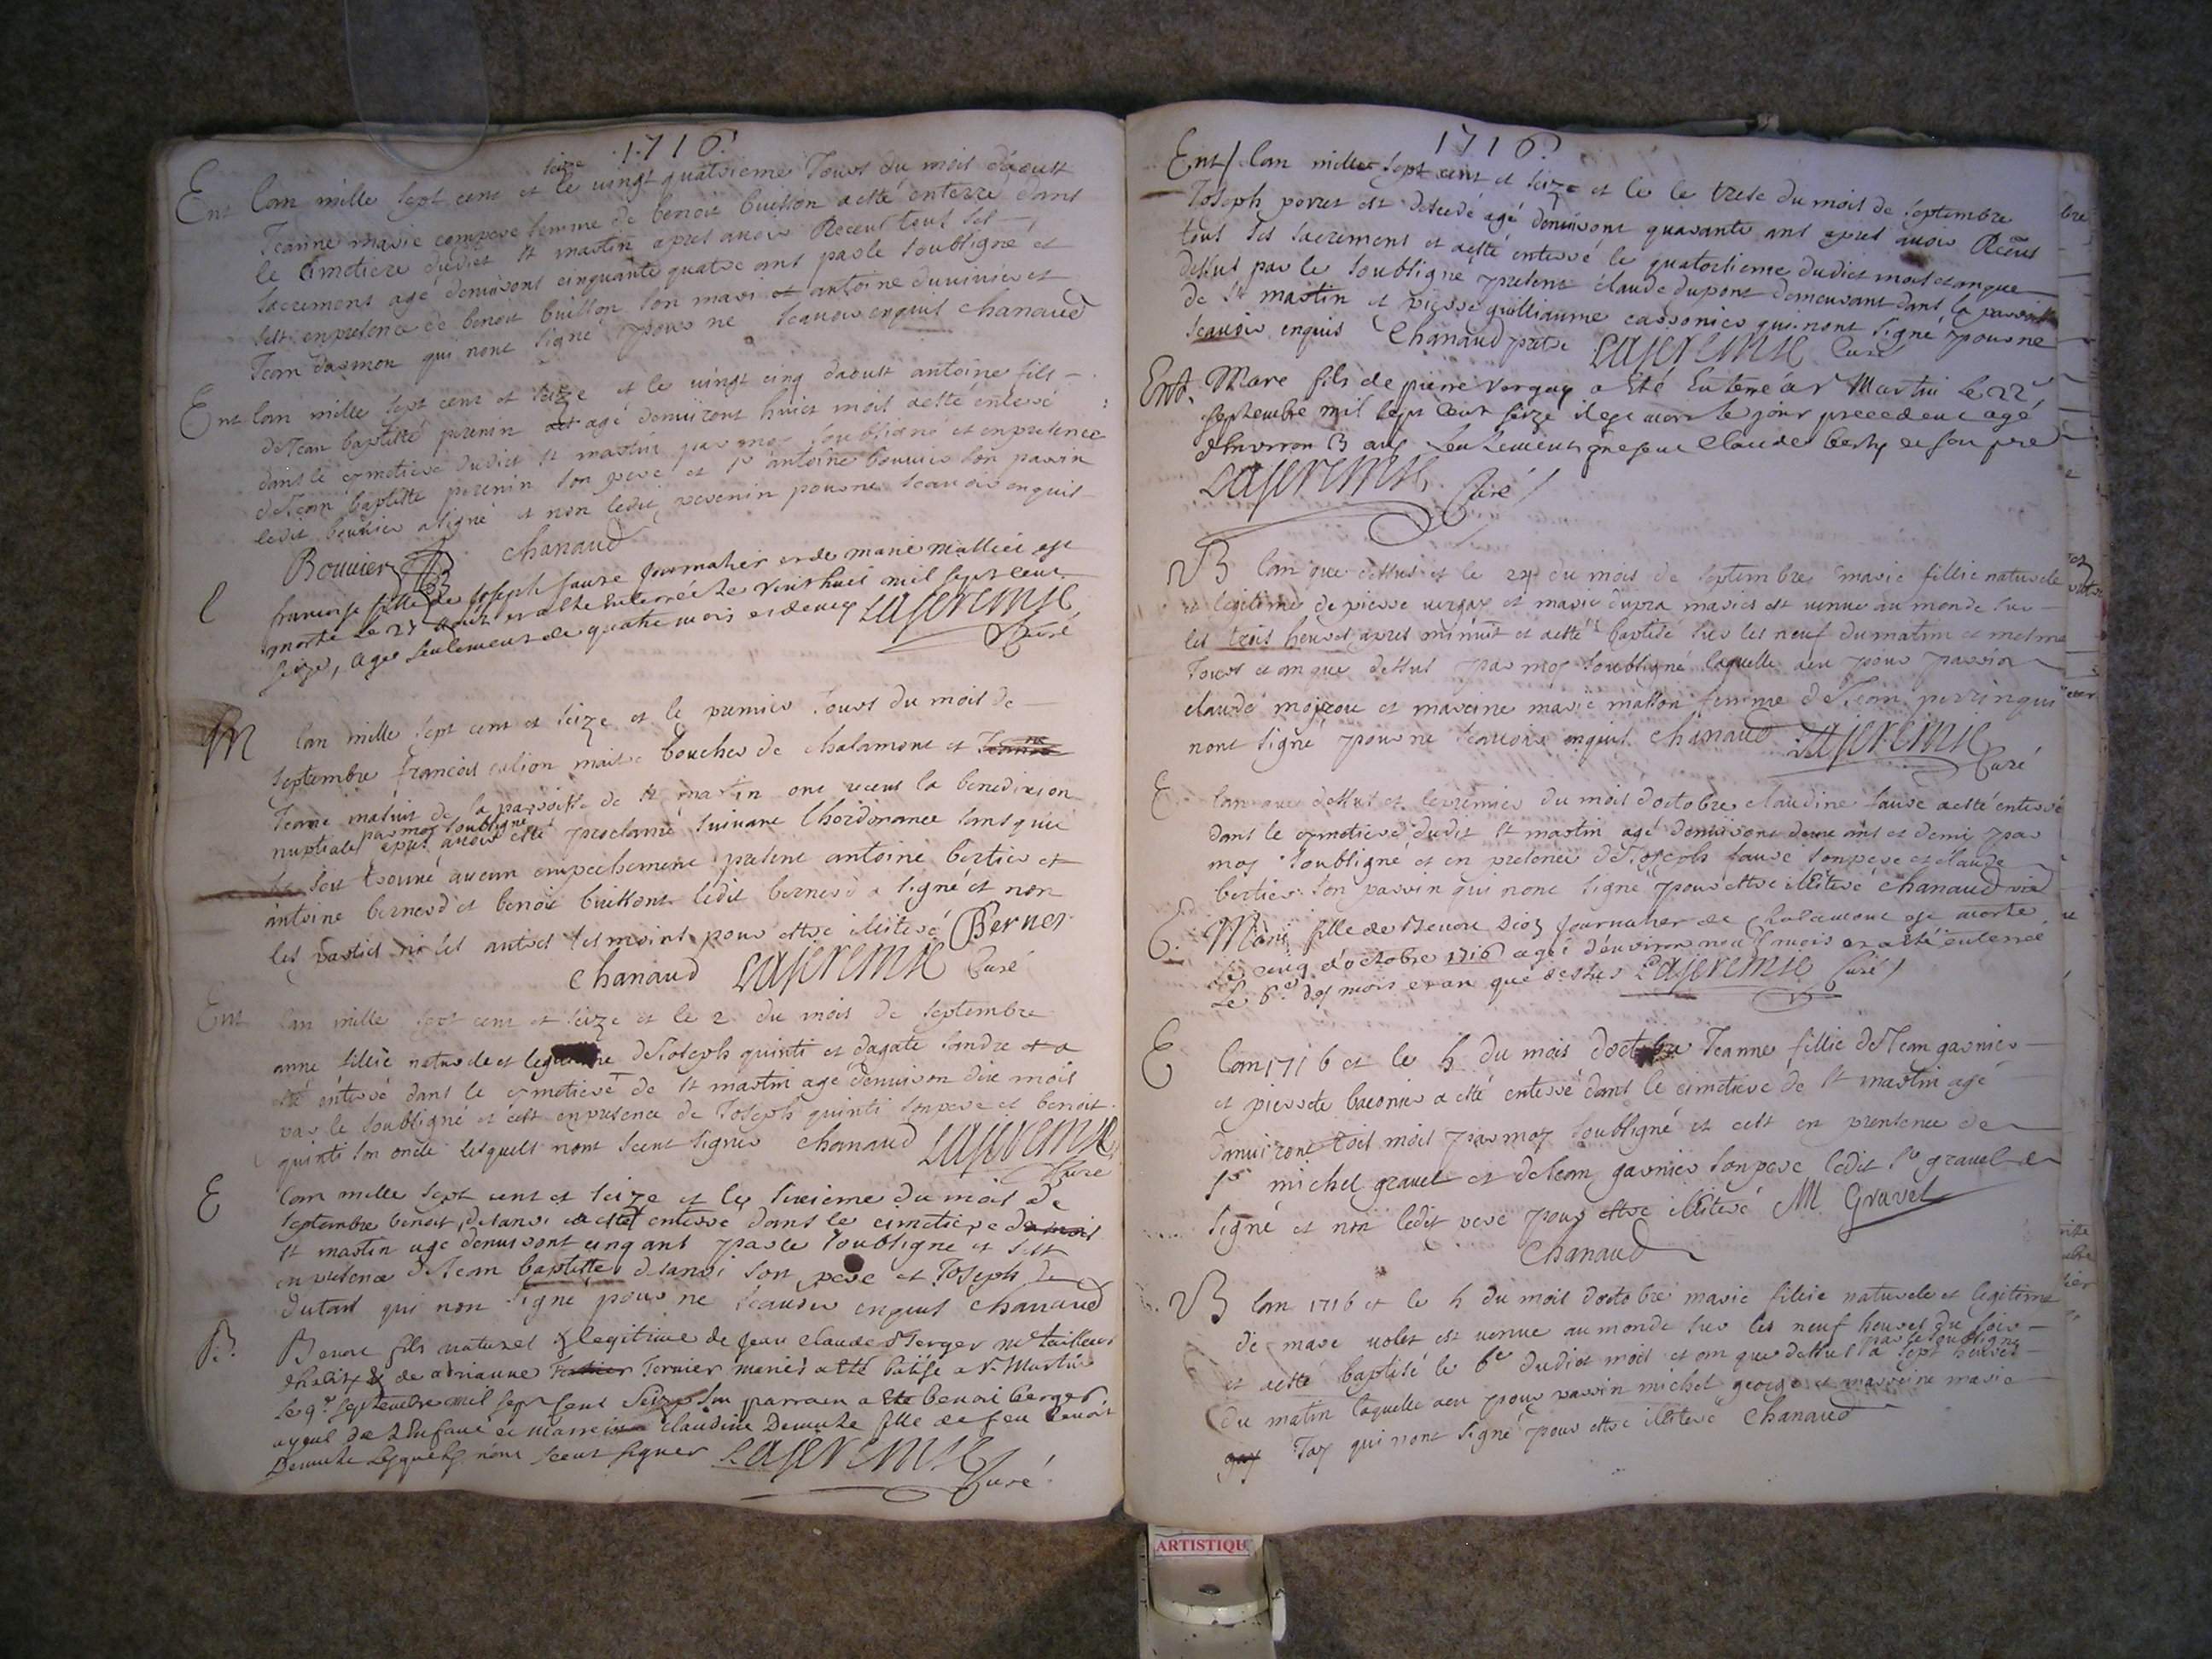 1716
Ent lan mille sept cent et seize le vingt quatrieme Jour du mois daoust
Jeanne marie compere femme de benoit buisson a esté enterre dans
le Cimetiere dudict St martin apres avoir Receu tous ses
sacremens agé denuiront cinquante quatre ans par le soubsigné et
sest en presence de benoit buisson son mari et antoine duvivier et
Jean darmon qui nont signé pour ne scauoir enquis chanaud
Ent lan mille sept cent et seize et le vingt cinq daoust antoine fils
de Jean baptiste perenin agé denuiront huict mois a esté enterré
dans le cymetiere dudict St martin par moy soubsigné et en presence
de Jean baptiste perenin son pere et Sr antoine bouvier son parin
ledit bouvier a signé et non ledit perenin pour ne scauoir enquis
Bouvier chanaud
E francoise fille de Joseph faure Journalier et de marie malliei est
morte Le 27 Août et a esté enterrée Le vint huit mil sept cent
seize, agee seulement de quatre mois et demy Lajerémie
Curé
M lan mille sept cent et seize et le premier Jours du mois de
septembre francois maitre boucher de chalamont et
Jeanne mathie de la paroisse de St martin ont receus la benediction
nuptiales par moy soubsigné apres auoir esté proclamé suivant lhordonance sans quil
se soit trouué aucun empechement present antoine bertier et
antoine bernerd et benoit buissont ledit bernerd a signé et non
les parties ni les autres tesmoins pour estre illiteré Berner
chanaud Lajerémie Curé
Ent lan mille sept cent et seize et le 2 du mois de septembre
anne fillie naturele et legitime de Joseph quinti et dagate landre a
esté enterré dans le cymetiere de St martin agé denuiron dix mois
par le soubsigné et cest en presence de Joseph quinti son pere et benoit
quinti son oncle lesquels nont sceut signer chanaud Lajerémie
Curé
E lan mille sept cent et seize et le sixieme du mois de
septembre benoit a esté enterre dans le cimetiere
St martin agé denuiront cinq ans par le soubsigné et sest
en presence de Jean baptiste son pere et Joseph
dutart qui non signé pour ne scauoir enquis chanaud
B. Benoit fils naturel & legitime de Jean claude Berger me tailleur
& de Tornier mariés a esté batisé a St Martin
le 9e septembre mil sept cent Seize son parrain a Esté benoit berger
ayeul de L'Enfant et Marreine claudine Demuste fille de feu benoit
Demuste Lesquels n'ont sceut signer Lajerémie
Curé
1716
Ent lan mille sept cent et seize et le le trese du mois de septembre
Joseph perret est decedé agé denuiront quarante ans apres auoir Receus
tous ses sacremens et a esté enterré le quatorsieme dudict mois et an que
dessus par le soubsigné present claude dupont demeurant dans la paroisse
de St martin et pierre guilliaume carronier qui nont signé pour ne
scauoir enquis Chanaud pretre Lajerémie Curé
Ent. Mare fils de pierre vergay a Eté Enterré a St Martin Le 22e
septembre mil sept cent seize il est mort le jour precedent agé
d'Environ 3 ans seulement present claude berty et son pere
Lajerémie Curé
B lan que dessus et le 24 du mois de septembre marie fillie naturele
et legitime de pierre vergay et marie dupra maries est venue au monde sur
les trois heures apres minuit et a esté baptisé sur les neuf du matin et mesme
Jour et an que dessus par moy soubsigné laquelle a eu pour parin
claude mojrou et mareine marie masson femme de Jean perrin qui
nont signé pour ne scauoir enquis chanaud Lajerémie
Curé
E lan que dessus et le premier du mois doctobre claudine faure a esté enterré
dans le cymetiere dudit St martin agé denuiront deux ans et demi par
moy soubsigné et en presence de Joseph faure son pere et claude
bertier son parrin qui nont signé pour estre illiteré chanaud
E. Marie fille de Benoit Dioz Journalier de Chalamont est morte
le cinq d'octobre 1716 agée d'environ neuf mois et a esté enterrée
Le 6e des mois et an que dessus Lajerémie Curé
E lan 1716 et le 5 du mois doctobre Jeanne fillie de Jean garnier
et pierrete baconier a esté enterré dans le cimetiere de St martin agé
danuiront trois mois par moy soubsigné et cest en presence de
Sr michel gravel et de Jean garnier son pere ledit Sr gravel a
signé et non ledit pere pour estre illiteré M Gravel
Chanaud
B lan 1716 et le 5 du mois doctobre marie fillie naturele et legitime
de mare volet est venue au monde sur les neuf heures du soir
et a esté baptisé le 6e dudict mois et an que dessus par le soubsigné a sept heures
du matin laquelle a eu pour parin michel george et marreine marie
Jay qui nont signé pour estre illiteré Chanaud
ARTISTIQU